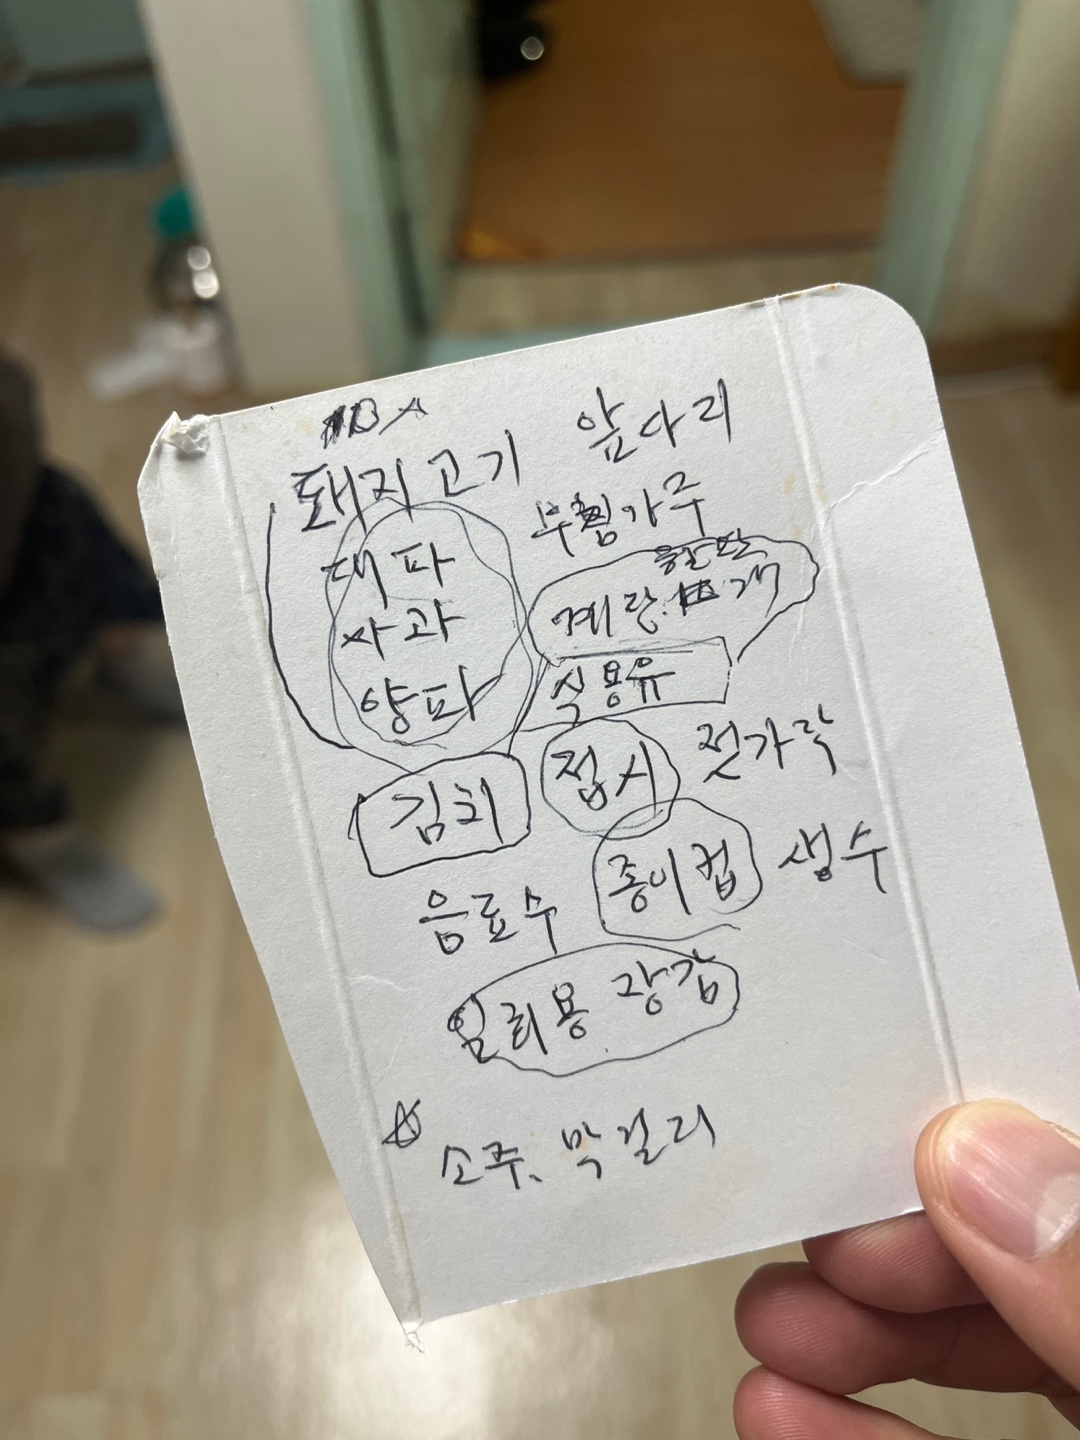 돼지고기 앞다리
대파 부침가루
사과 계란 한판
양파 식용유
김치 접시 젓가락
음료수 종이컵 생수
일회용 장갑
소주, 막걸리